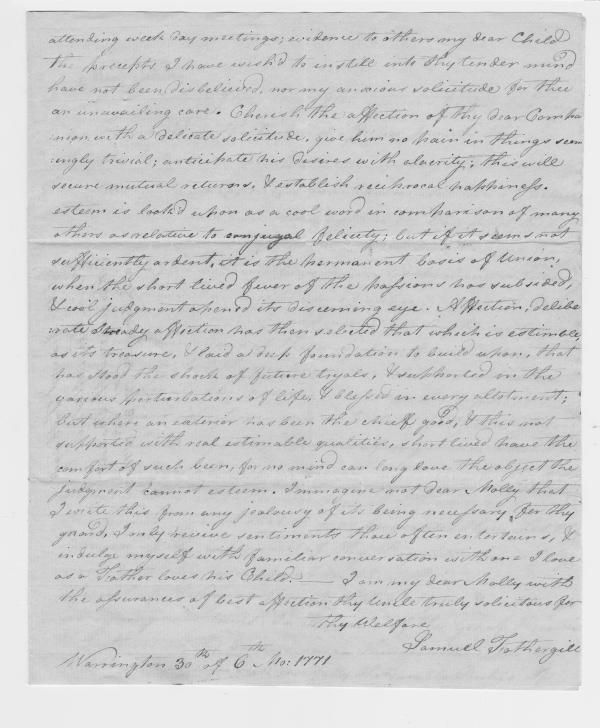 attending week day meetings; evidence to others my dear Child
the precepts I have wish'd to instill into thy tender mind
have not been disbelieved, nor my anxious solicitude for thee
an unavailing care. Cherish the affection of thy dear Compa
nion with a delicate solicitude, give him no pain in things seem
ingly trivial; anticipate his desires with alacrity; this will
secure mutual returns, & establish reciprocal happiness.
esteem is look'd upon as a cool word in comparison of many
others as relative to conjugal felicity; but if it seems not
sufficiently ardent, it is the permanent basis of Union,
when the short lived fever of the passions has subsided,
& cool judgment opened its discerning eye. Affection, delibe
rate steady affection has then selected that which is estimable
as its treasure, & laid a deep foundation to build upon, that
has stood the shock of future tryals, & supported in the
various perturbations of life, & blessed in every allotment;
but where an exterior has been the chief good, & this not
supported with real estimable qualities, short lived have the
comfort of such been, for no mind can long love the object the
judgment cannot esteem. Immagine not dear Molly that
I write this from any jealousy of its being necessary for thy
guard, I only revive sentiments thou often entertains, &
indulge myself with familiar conversation with one I love
as a Father loves his Child. — I am my dear Molly with
the assurances of best affection thy Uncle truly solicitous for
thy Welfare
Samuel Fothergill
Warrington 30th of 6th Mo: 1771